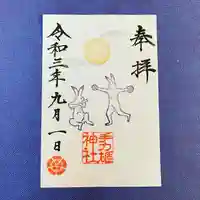 奉拝
令和三年九月一日
神社